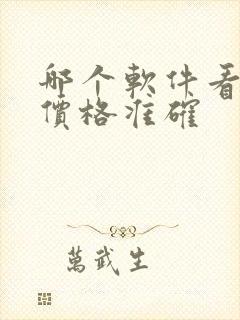 哪个軟件看
價格准確
萬武生